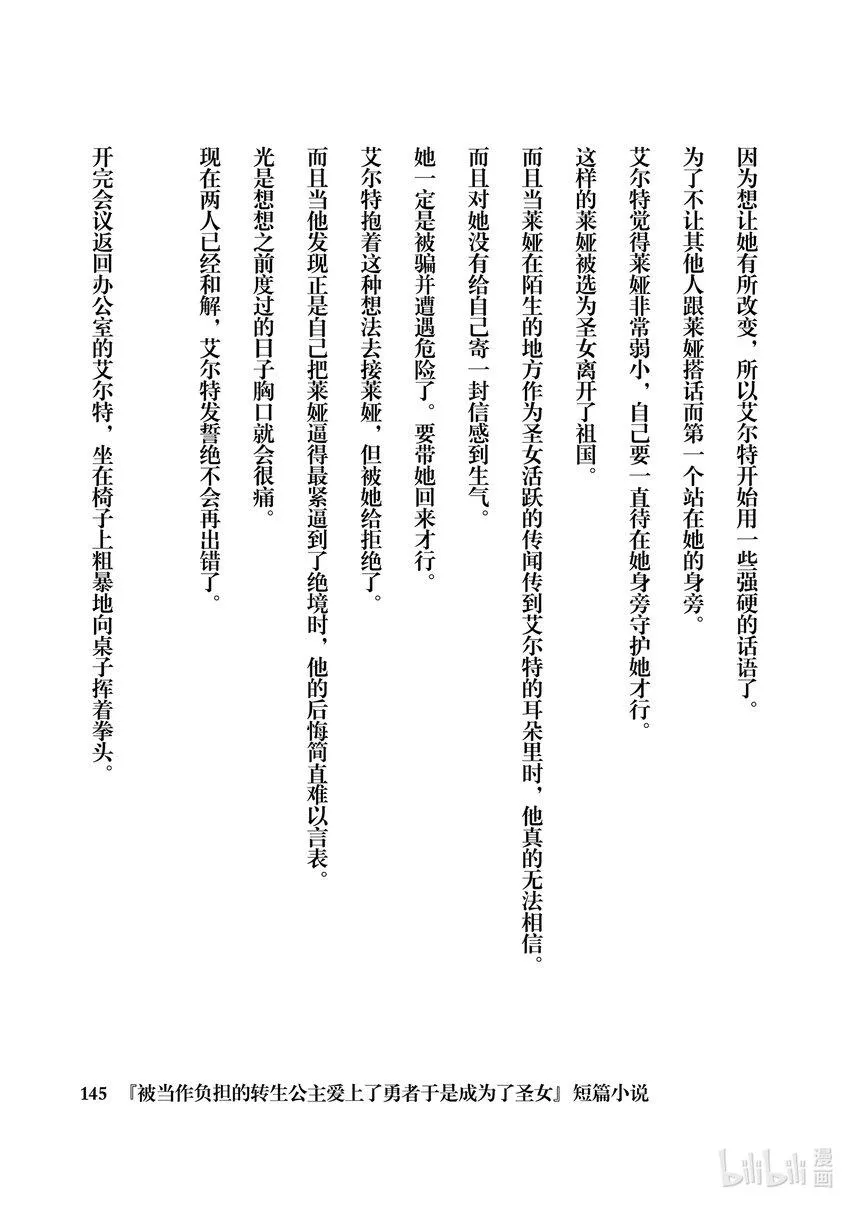 因为想让她有所改变，所以艾尔特开始用一些强硬的话语了。
为了不让其他人跟莱娅搭话而第一个站在她的身旁。
艾尔特觉得莱娅非常弱小，自己要一直待在她身旁守护她才行。
这样的莱娅被选为圣女离开了祖国。
而且当莱娅在陌生的地方作为圣女活跃的传闻传到艾尔特的耳朵里时，他真的无法相信。
而且对她没有给自己寄一封信感到生气。
她一定是被骗并遭遇危险了。要带她回来才行。
艾尔特抱着这种想法去接莱娅，但被她给拒绝了。
而且当他发现正是自己把莱娅逼得最紧逼到了绝境时，他的后悔简直难以言表。
光是想想之前度过的日子胸口就会很痛。
现在两人已经和解，艾尔特发誓绝不会再出错了。
开完会议返回办公室的艾尔特，坐在椅子上粗暴地向桌子挥着拳头。
145 『被当作负担的转生公主爱上了勇者于是成为了圣女』短篇小说
bilibili 漫画